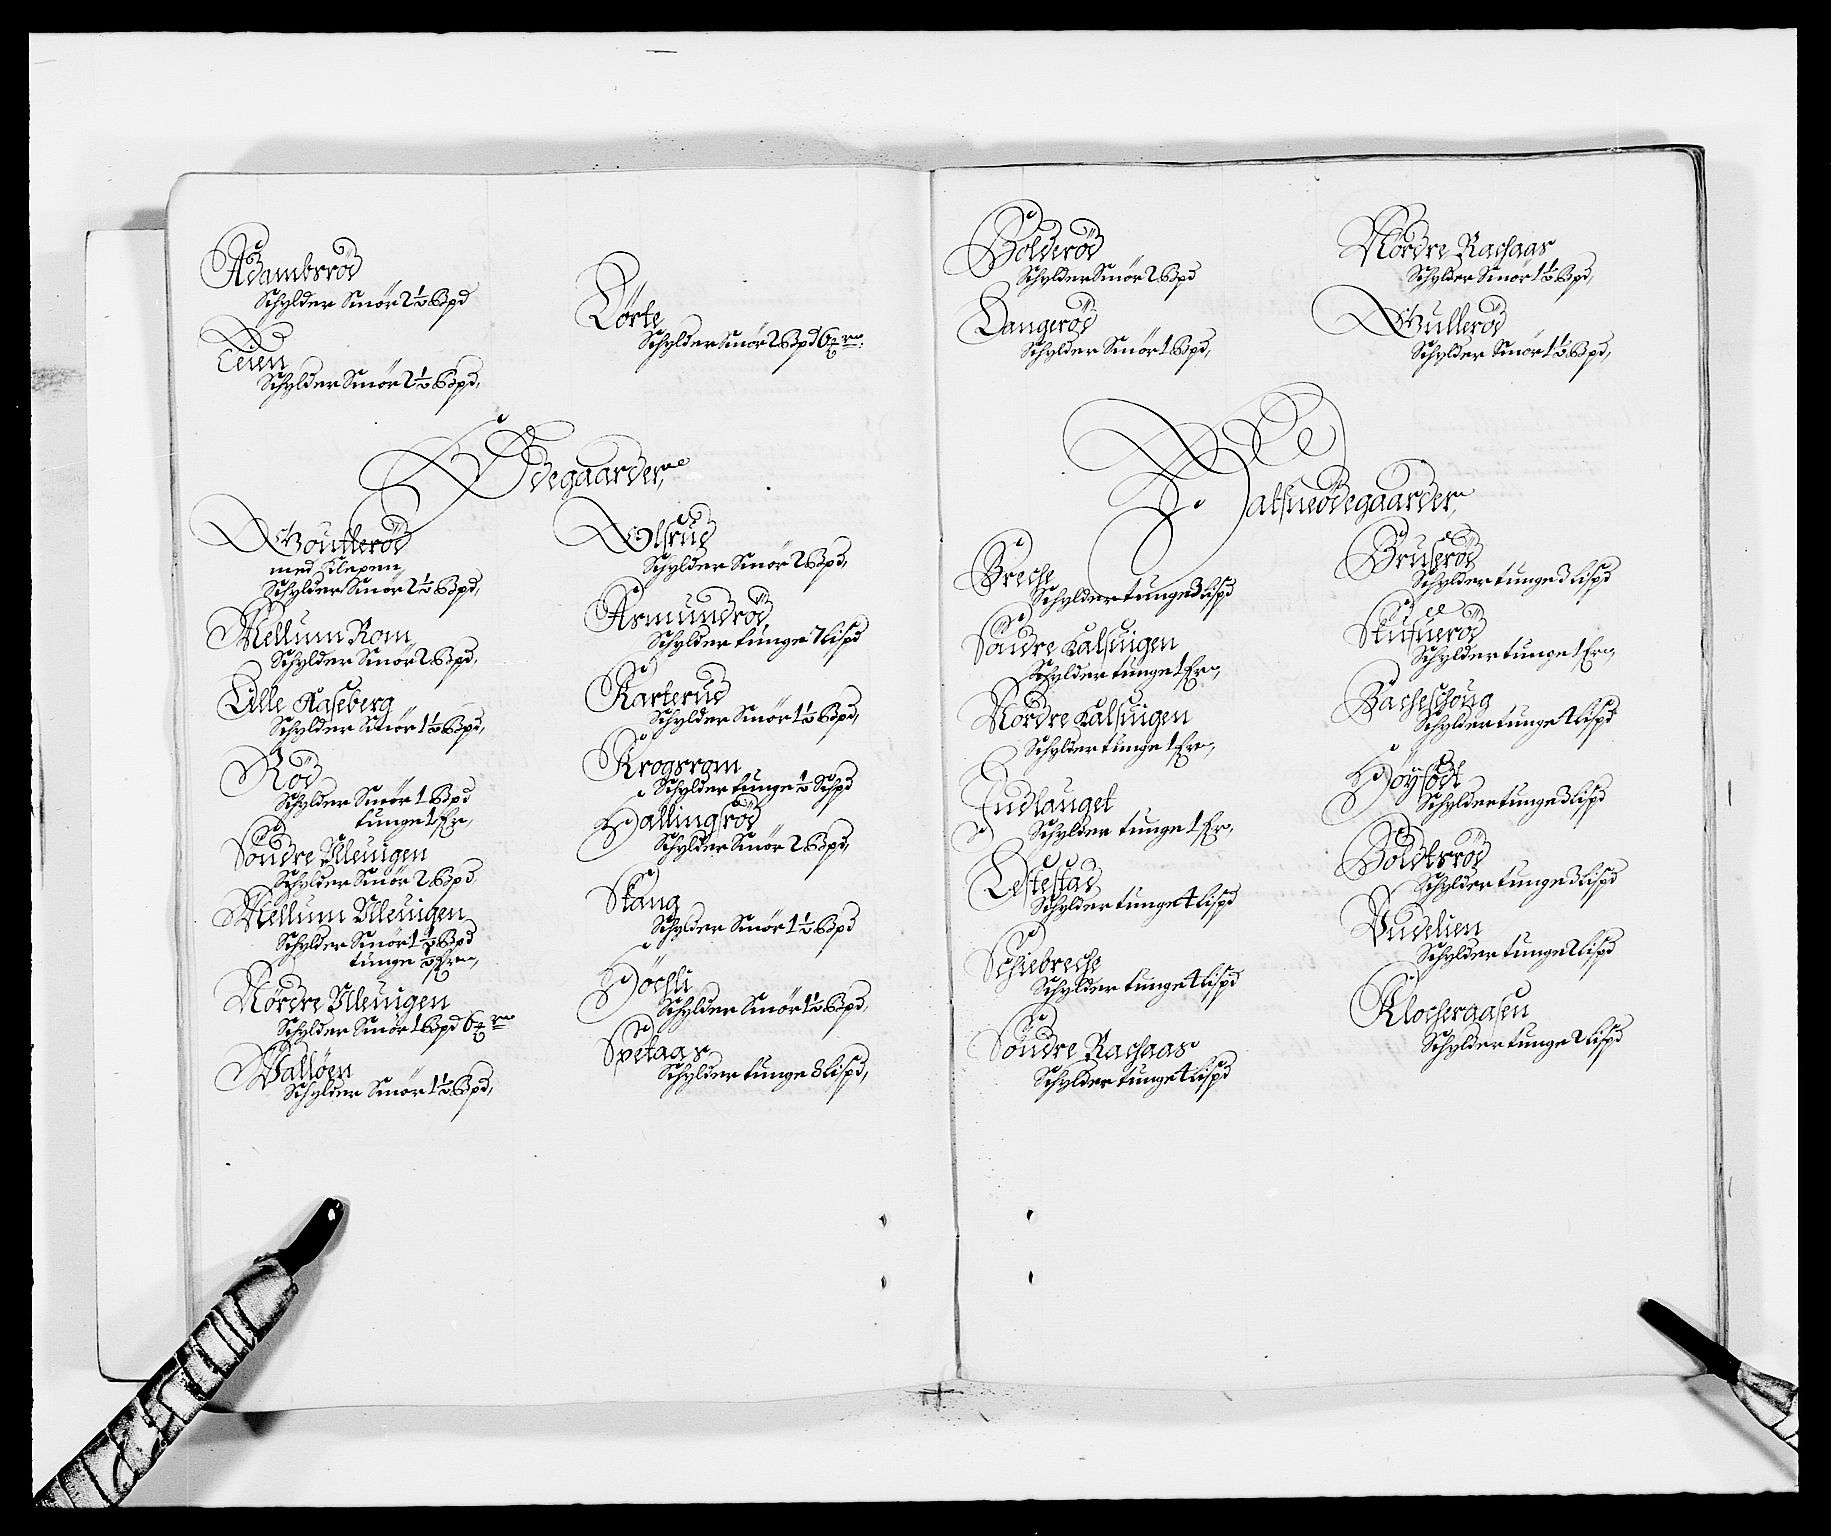 Adambsröd
Schylder Smör 2½ Bpd
Teien
Schylder Smör 2½ Bpd,
Lörte
Schylder Smör 2 Bpd 6
Ödegaarder,
Goufleröd
med Klepen,
Schylder Smör 2½ Bpd,
Mellum Rom
Schylder Smör 2 Bpd,
Lille Aaseberg
Schylder Smör 1½ Bpd,
Röd
Schylder Smör 1 Bpd
tunge 1 Fr,
Söndre Ulleuigen
Schylder Smör 2 Bpd
Mellum Ulleuigen
Schylder Smör 1½ Bpd
tunge ½ Fr,
Nördre Ulleuigen
Schylder Smör 1 Bpd 6
Valløen
Schylder Smör 1½ Bpd,
Olsrud
Schylder Smör 2 Bpd,
Asmundröd
Schylder tunge 7 Lispd
Karterud
Schylder Smör 1½ Bpd,
Krogsrom
Schylder tunge ½ Schpd
Hallingsröd
Schylder Smör 2 Bpd,
Skang
Schylder Smör 1½ Bpd
Höchli
Schylder Smör 1½ Bpd,
Spetaas
Schylder tunge 8 Lispd,
Bolderöd
Schylder Smör 2 Bpd
Langeröd
Schylder Smör 1 Bpd,
Nordre Rachaas
Schylder Smör 1½ Bpd,
Gulleröd
Schylder Smör 1½ Bpd,
Öde
Halfueödegaarder,
Breche
Schylder tunge 3 Lispd
Söndre Kalfuigen
Schylder tunge 1 Fr,
Nordre Kalfuigen
Schylder tunge 1 Fr,
Indlauget
Schylder tunge 1 Fr,
Lestestad
Schylder tunge 4 Lispd
Schiebreche
Schylder tunge 4 Lispd
Söndre Rachaas
Schylder tunge 4 Lispd
Bruseröd
Schylder tunge 3 Lispd
Stufueröd
Schylder tunge 1 Fr,
Bacheschoug
Schylder tunge 4 Lispd
Höysödt
Schylder tunge 3 Lispd
Boldtsröd
Schylder tunge 3 Lispd
Vudelien
Schylder tunge 2 Lispd
Klocheraasen
Schylder tunge 2 Lispd